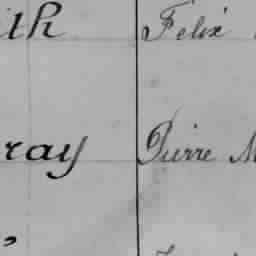 ith Felix
ray Pierre M